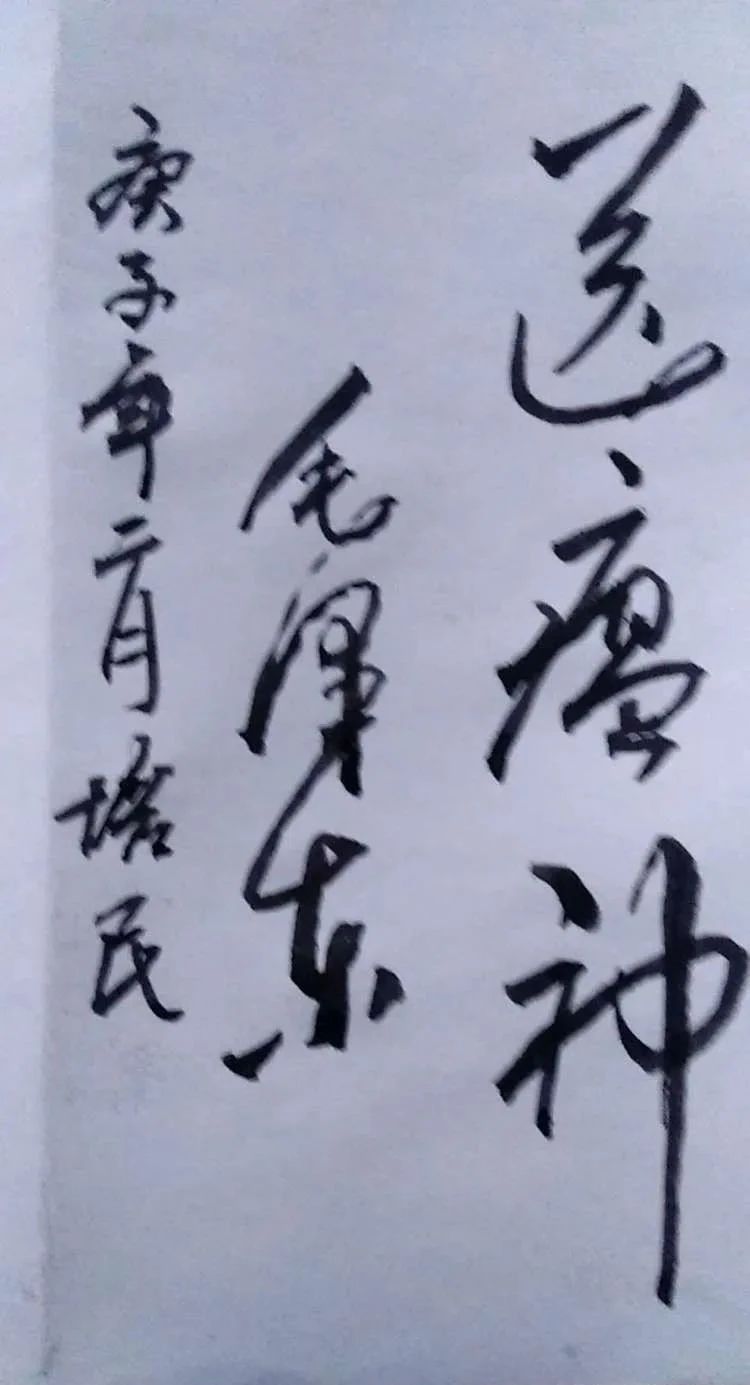 送瘟神
毛泽东
庚子年二月塔民